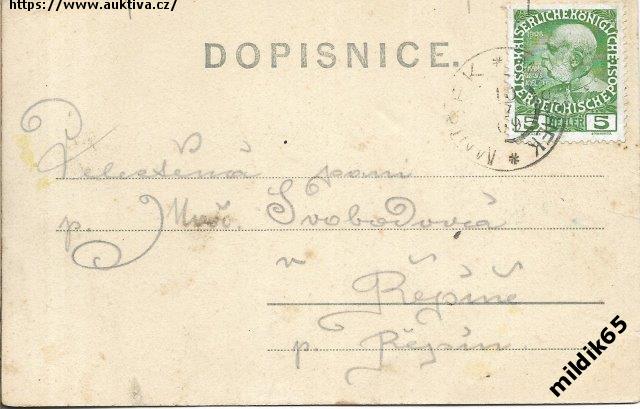 https://www.auktiva.cz/
DOPISNICE.
KAISERLICHE KÖNIGLICHE
ÖSTERREICHISCHE POST
5 HELLER 5
Velectěná paní
p. Svobodová
v
Řepíně
p. Řepín.
mildik65